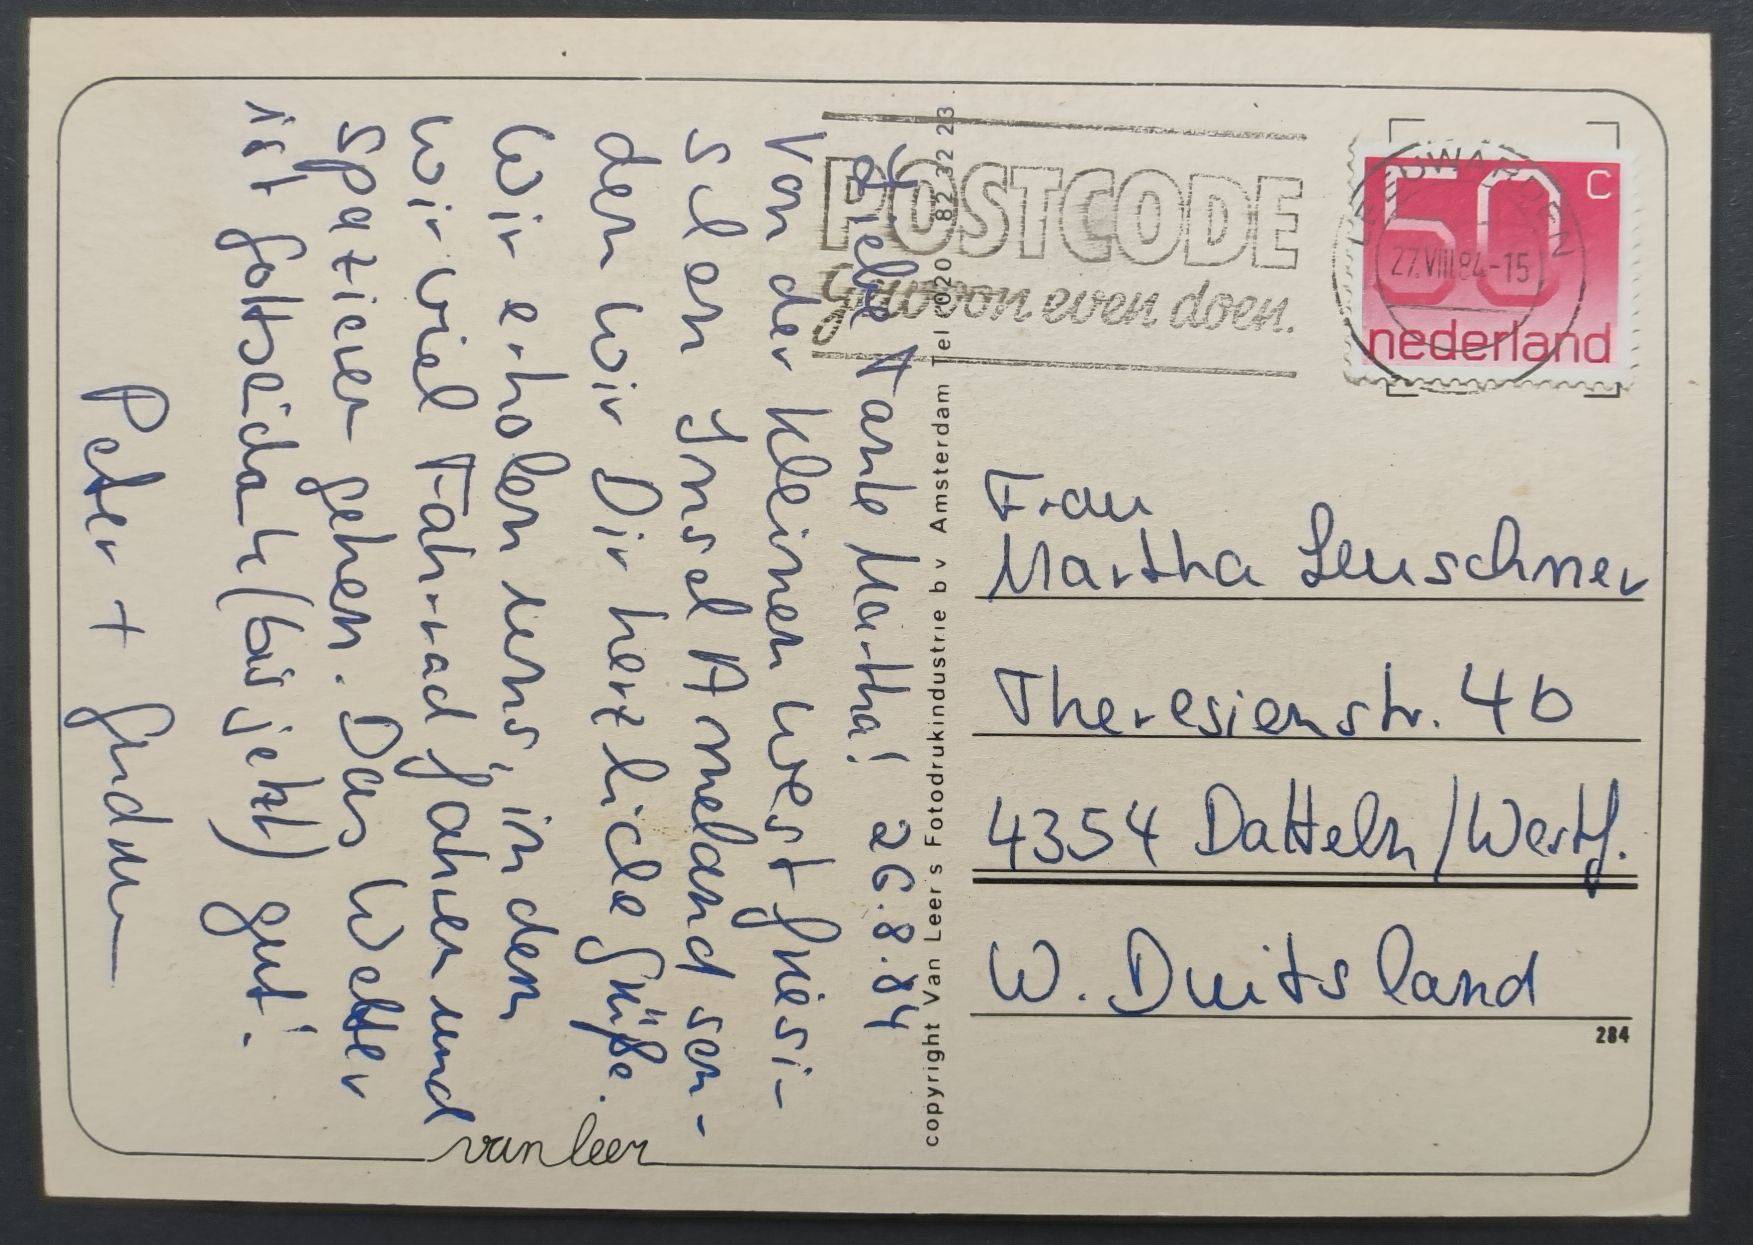 Liebe Tante Martha! 26.8.84
Von der kleinen westfriesi-
schen Insel Ameland sen-
den wir Dir herzliche Grüße.
Wir erholen uns, in dem
wir viel Fahrrad fahren und
spazieren gehen. Das Wetter
ist gottseidank (bis jetzt) gut!
Peter + Gudrun
POSTCODE
gewoon even doen.
LEEUWARDEN
27.VIII.84-15
50 C
nederland
Frau
Martha Leuschner
Theresienstr. 4b
4354 Datteln/Westf.
W. Duitsland
284
copyright Van Leer's Fotodrukindustrie b v Amsterdam Tel (020) 82 32 23
van leer